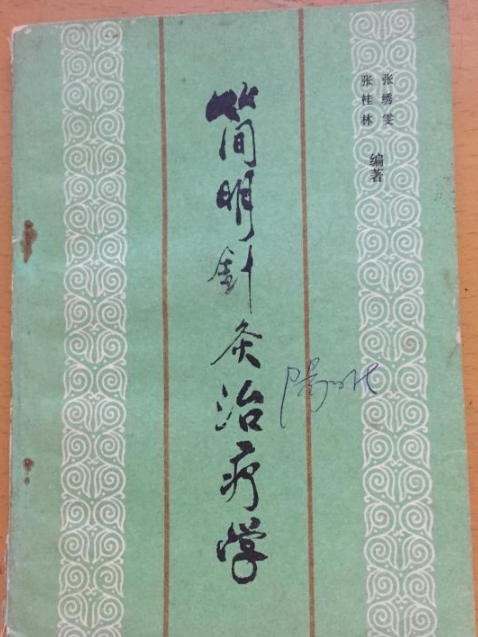 张绣雯
张桂林
编著
简明針灸治疗学